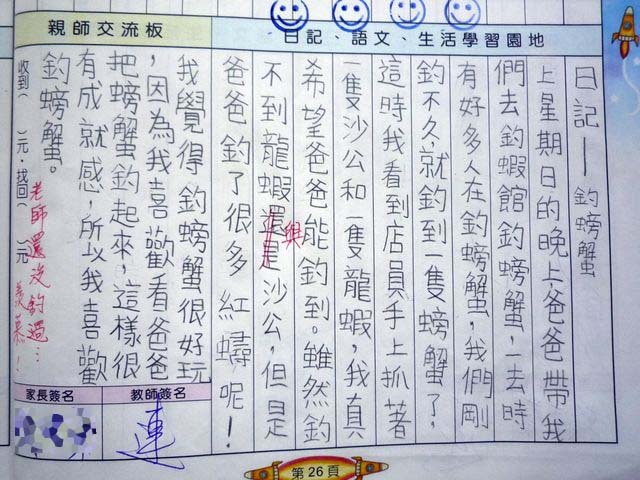 親師交流板
日記、語文、生活學習園地
日記——釣螃蟹
上星期日的晚上，爸爸帶我
們去釣蝦館釣螃蟹，一去時
有好多人在釣螃蟹，我們剛
釣不久就釣到一隻螃蟹了，
這時我看到店員手上抓著
一隻沙公和一隻龍蝦，我真
希望爸爸能釣到。雖然釣
不到龍蝦還是沙公，但是
與
爸爸釣了很多紅蟳呢！
我覺得釣螃蟹很好玩
，因為我喜歡看爸爸
把螃蟹釣起來，這樣很
有成就感，所以我喜歡
釣螃蟹。
收到（　）元，找回（　）元
老師還沒釣過…
羨慕！
家長簽名
教師簽名
連
第26頁